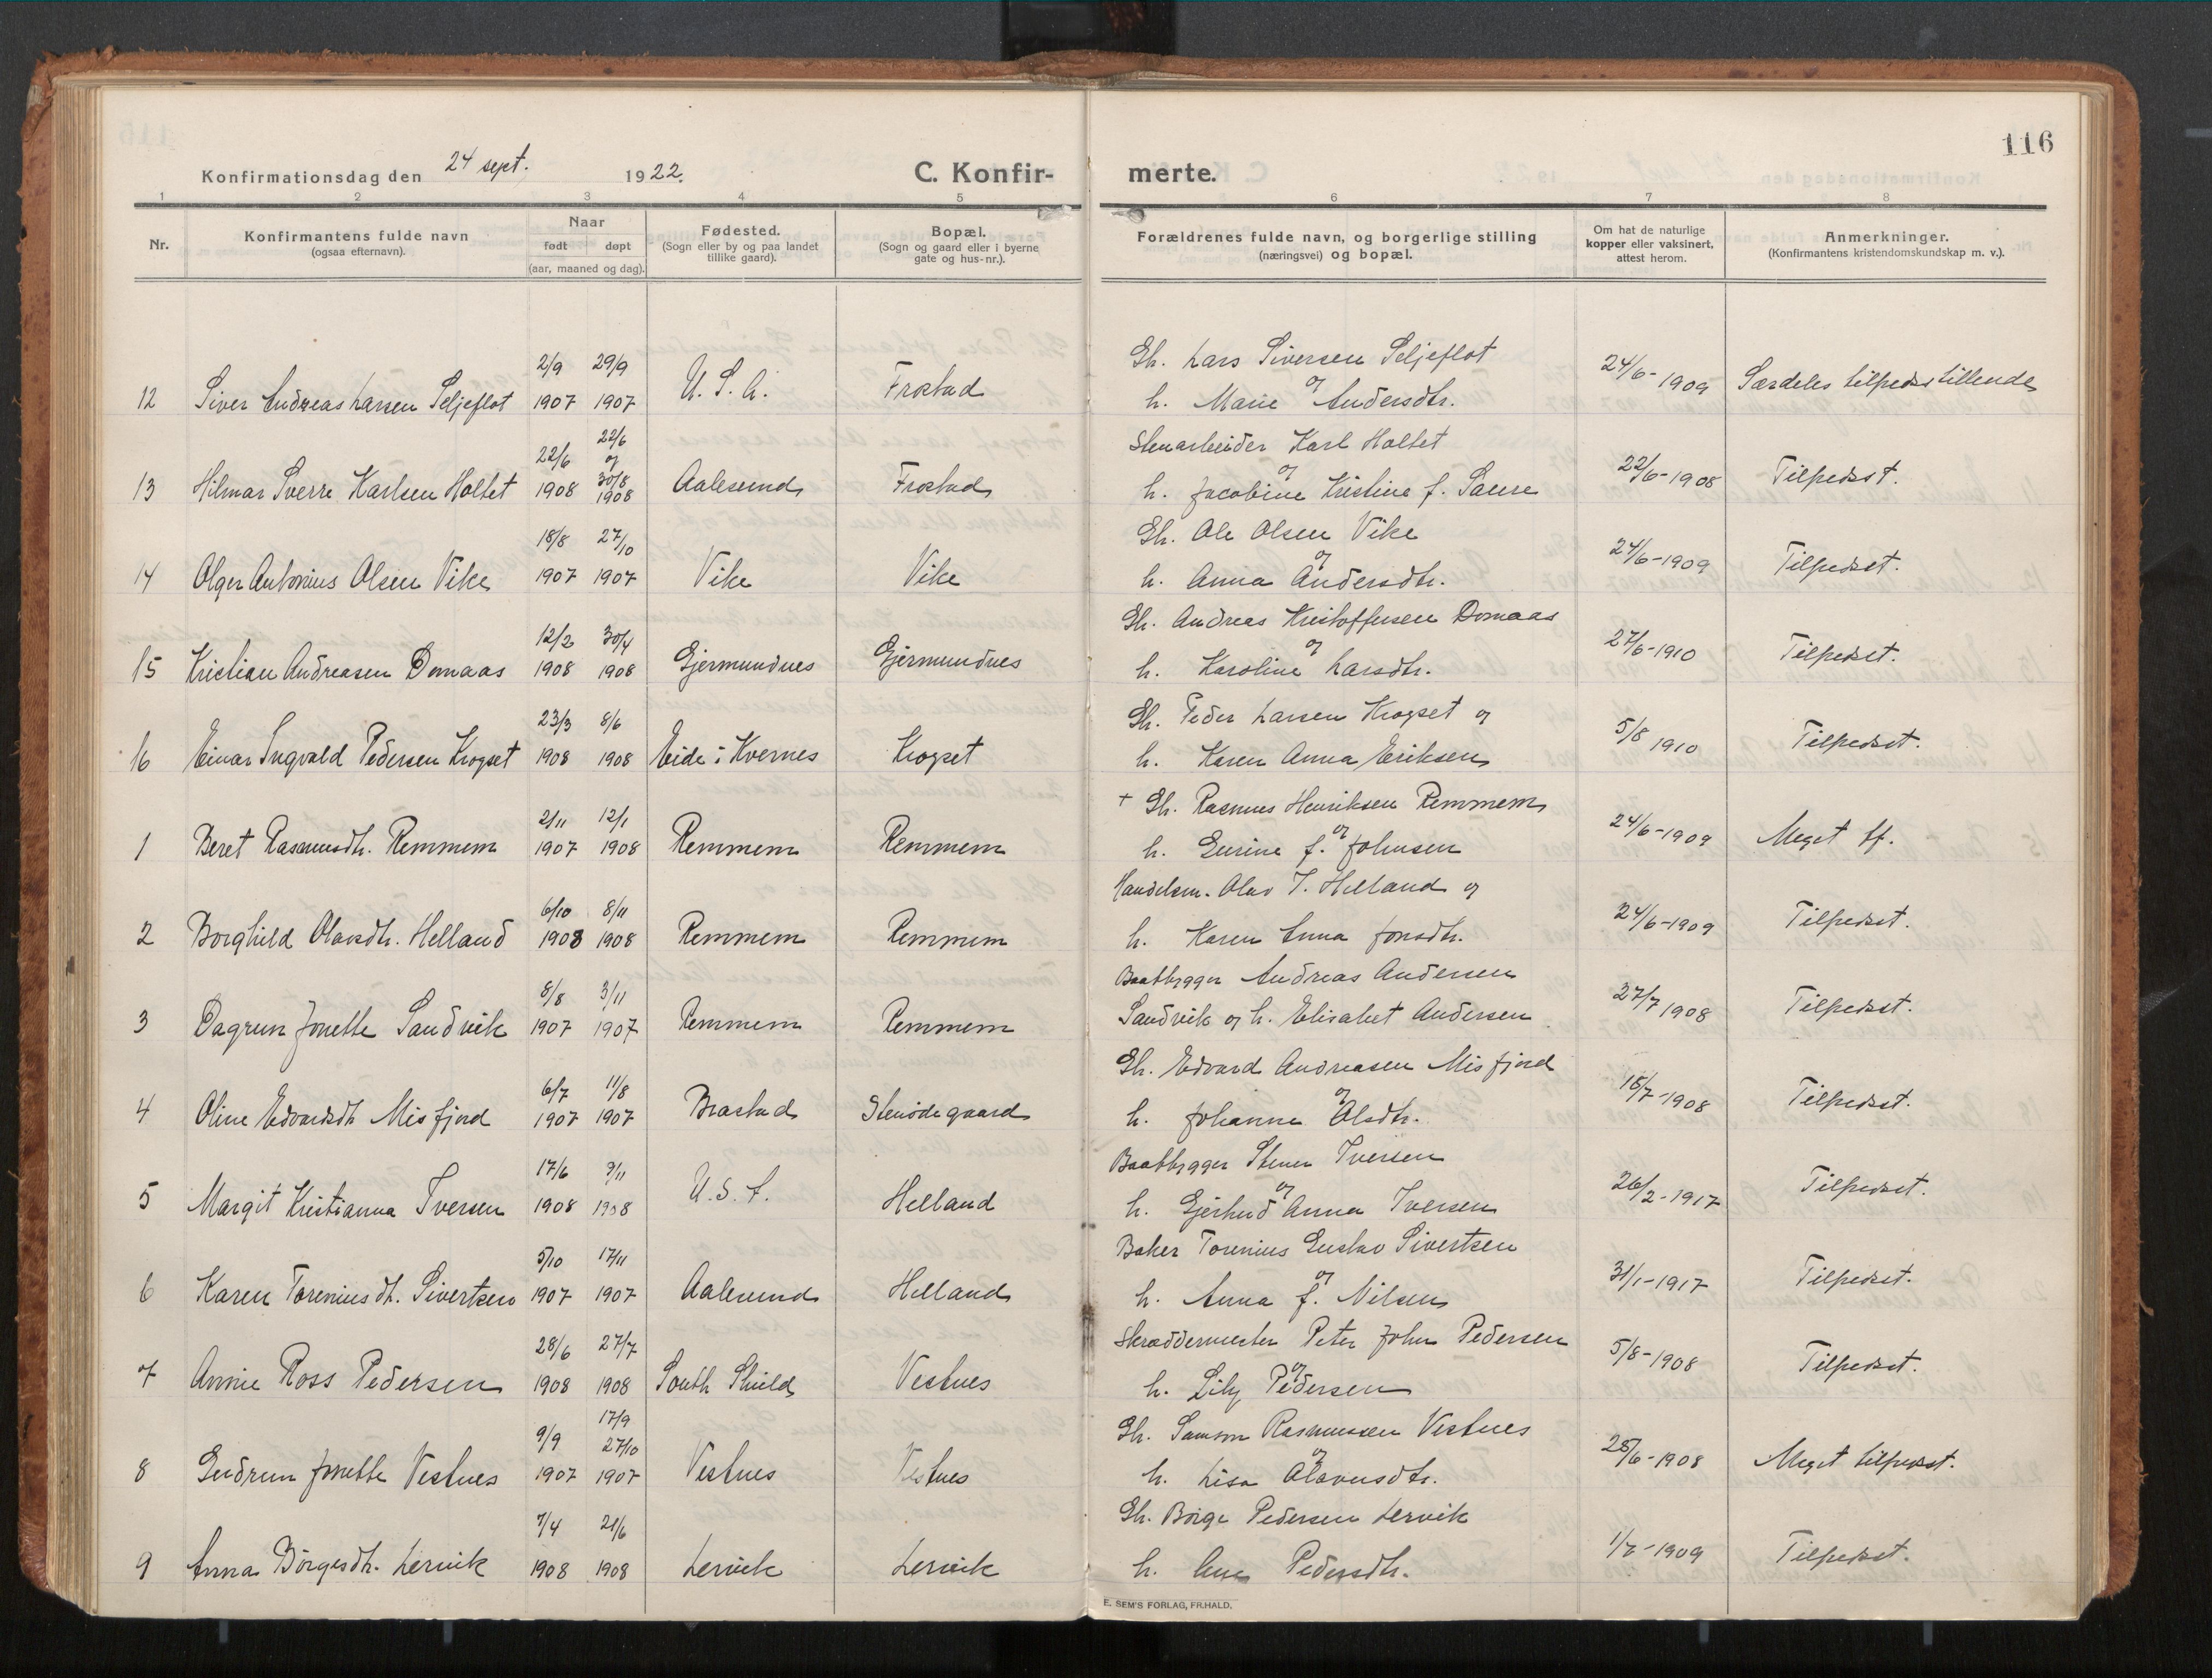 116
Konfirmationsdag den 24 sept. 1922.
C. Konfir-
merte.
1 2 3 4 5 6 7 8
Nr.
Konfirmantens fulde navn
(ogsaa efternavn).
Naar
født døpt
(aar, maaned og dag).
Fødested.
(Sogn eller by og paa landet
tillike gaard).
Bopæl.
(Sogn og gaard eller i byerne
gate og hus-nr.).
Forældrenes fulde navn, og borgerlige stilling
(næringsvei) og bopæl.
Om hat de naturlige
kopper eller vaksinert,
attest herom.
Anmerkninger.
(Konfirmantens kristendomskundskap m. v.).
2/9 29/9 Gh. Lars Siversen Seljeflot
12 Siver Andreas Larsen Seljeflot 1907 1907 U. S. A. Frostad og h. Marie Andersdtr. 24/6-1909 Særdeles tilfredsstillende
22/6 22/6 og Stenarbeider Karl Holtet
13 Hilmar Sverre Karlsen Holtet 1908 30/8 1908 Aalesund Frostad og h. Jacobine Kristine f. Saure 22/6-1908 Tilfredsst.
18/8 27/10 Gh. Ole Olsen Vike
14 Olger Antonius Olsen Vike 1907 1907 Vike Vike og h. Anna Andersdtr. 24/6-1909 Tilfredsst.
12/2 30/4 Gh. Andreas Kristoffersen Domaas
15 Kristian Andreasen Domaas 1908 1908 Gjermundnes Gjermundnes og h. Karoline Larsdtr. 27/6-1910 Tilfredsst.
23/3 8/6 Gh. Peder Larsen Krogset og
16 Einar Ingvald Pedersen Krogset 1908 1908 Eide i Kvernes Krogset h. Karen Anna Eriksen 5/8 1910 Tilfredsst.
2/11 12/1 + Gh. Rasmus Henriksen Remmem
1 Beret Rasmusdtr. Remmem 1907 1908 Remmem Remmem og h. Gurine f. Johnsen 24/6-1909 Meget tf.
6/10 8/11 Handelsm. Olav T. Helland og
2 Borghild Olavsdtr. Helland 1908 1908 Remmem Remmem h. Karen Anna Jonsdtr. 24/6-1909 Tilfredsst.
8/8 3/11 Baatbygger Andreas Andersen
3 Dagrun Jonette Sandvik 1907 1907 Remmem Remmem Sandvik og h. Elisabet Andersen 27/7 1908 Tilfredsst.
6/7 11/8 Gh. Edvard Andreasen Misfjord
4 Oline Edvardsdtr Misfjord 1907 1907 Brastad Stenødegaard og h. Johanne Olsdtr. 15/7-1908 Tilfredsst.
17/6 9/11 Baatbygger Stener Iversen
5 Margit Kristianna Iversen 1908 1908 U. S. A. Helland og h. Gjertrud Anna Iversen 26/2-1917 Tilfredsst.
5/10 17/11 Baker Torenius Gustav Sivertsen
6 Karen Toreniusdtr. Sivertsen 1907 1907 Aalesund Helland og h. Anna f. Nilsen 31/1-1917 Tilfredsst.
28/6 27/7 Skræddermester Peter John Pedersen
7 Annie Ross Pedersen 1908 1908 South Shield Vestnes og h. Lily Pedersen 5/8-1908 Tilfredsst.
9/9 17/9 27/10 Gh. Samson Rasmussen Vestnes
8 Gudrun Jonette Vestnes 1907 1907 Vestnes Vestnes og h. Lisa Olavusdtr. 25/6-1908 Meget tilfredsst.
7/4 21/6 Gh. Børge Pedersen Lervik
9 Anna Børgesdtr. Lervik 1908 1908 Lervik Lervik h. Ane Pedersdtr. 1/7-1909 Tilfredsst.
E. SEM'S FORLAG, FR.HALD.